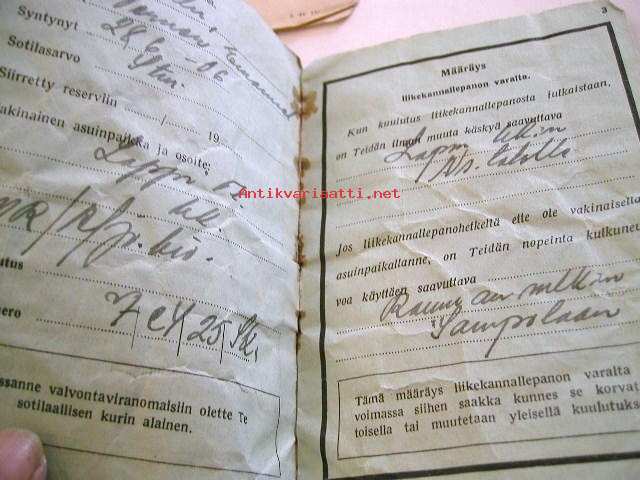 Syntynyt 28/6 -06
Sotilasarvo Stm.
Siirretty reserviin / 19
akinainen asuinpaikka ja osoite:
Lapp
utus
ero 7/CY/25/Sk.
ssanne valvontaviranomaisiin olette Te
sotilaallisen kurin alainen.
3
Määräys
liikekannallepanon varalta.
Kun kuulutus liikekannallepanosta julkaistaan,
on Teidän ilman muuta käskyä saavuttava
Lapin
Ns. talolle
Jos liikekannallepanohetkellä ette ole vakinaisella
asuinpaikallanne, on Teidän nopeinta kulkuneu
voa käyttäen saavuttava
Rauman
Sampolaan
Tämä määräys liikekannallepanon varalta
voimassa siihen saakka kunnes se korvat
toisella tai muutetaan yleisellä kuulutukse
Antikvariaatti.net